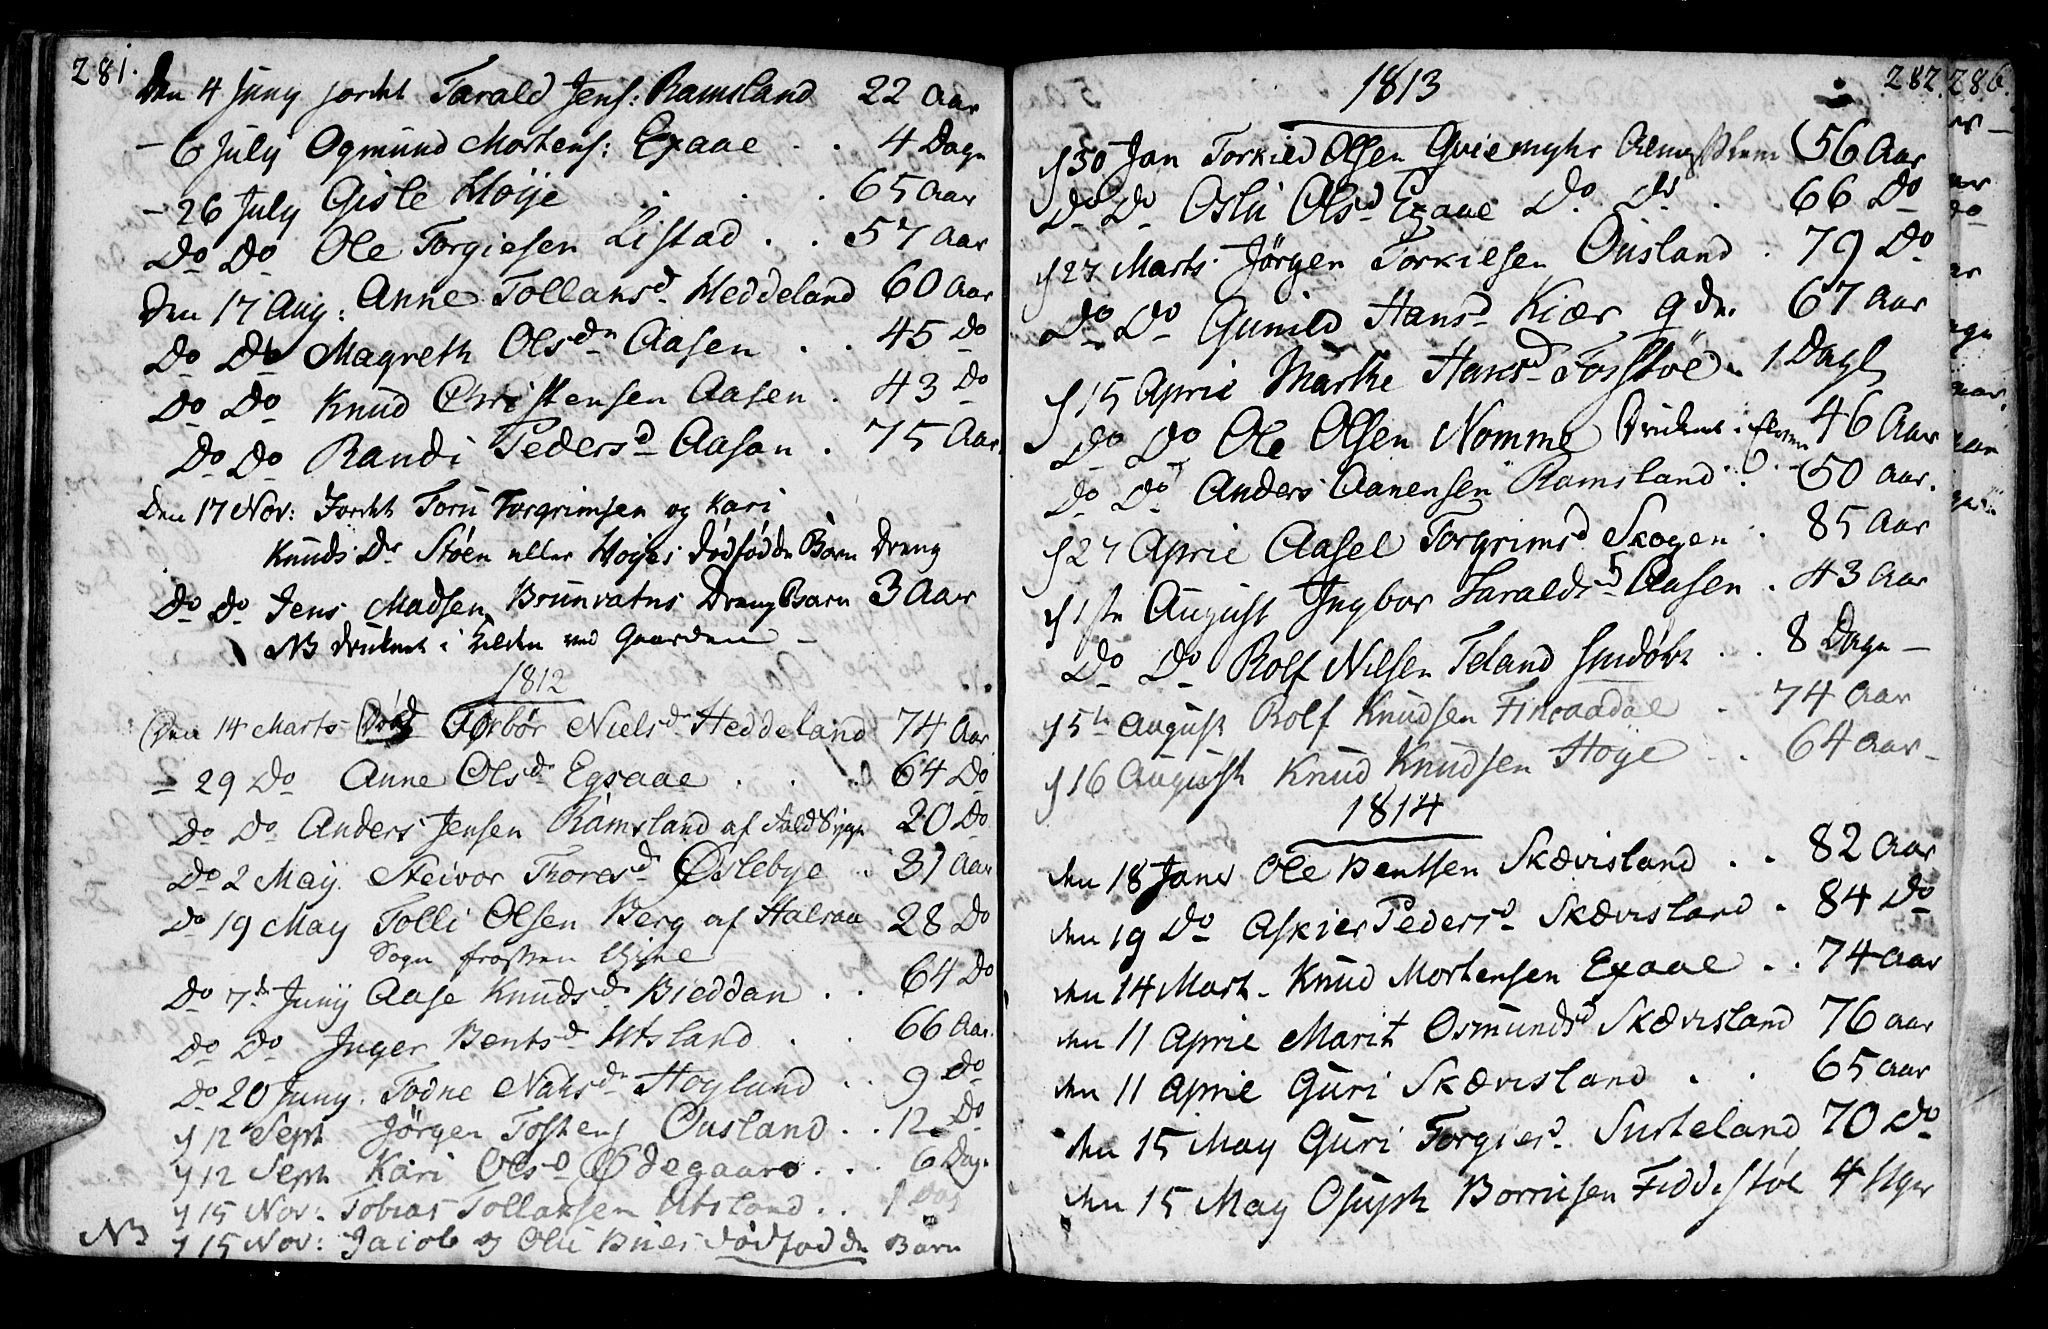 281.
Den 4 Juny jordet Tarald Jens: Ramsland 22 Aar
– 6 July Ogmund Mortens: Exaae . . 4 Dage
– 26 July Gisle Höije . . . 65 Aar
Do Do Ole Torgiesen Listad . . 57 Aar
Den 17 Aug: Anne Tollaksd. Heddeland 60 Aar
Do Do Magreth Olsdr Aasen . . 45 Do
Do Do Knud Christensen Aasen . 43 Do
Do Do Randi Pedersd Aasen . 75 Aar
Den 17 Nov: Jordet Toru Torgrimsen og Kari
Knuds Dr Stöen eller Höyes dödfödde Barn Dreng
Do Do Jens Madsen Brunvatns Dreng Barn 3 Aar
NB druknet i Kilden ved Gaarden –
1812
Den 14 Marts Död Torbör Nielsdr Heddeland 74 Aar
– 29 Do Anne Olsdr Egsaae . . . 64 Do
Do Do Anders Jensen Ramsland af 20 Do
Do 2 May Steivor Thoresd Öslebye . . 31 Aar
Do 19 May Tolli Olsen Berg af Halsaa 28 Do
Sogn frossen
Do 7de Juny Aase Knudsdr Bieddan . . 64 Do
Do Do Inger Bentsd Utsland . . 66 Aar
Do 20 Juny. Todne Nahsdr Hoyland . . 9 Do
d 12 Sept Jörgen Tostens Ousland . . 12 Do
d 12 Sept Kari Olsd Ödegaard . . . 6 Dage
d 15 Nov: Tobias Tollaksen Utsland . . 1 Dag
NB d 15 Nov: Jacob og Oluf Bues dödfödde Barn
282.
1813
d 30 Jan Torkild Olsen Qviemyhr 56 Aar
Do Do Oslu Olsd Exaae Do Do . 66 Do
d 27 Marts Jörgen Torkilsen Ousland . 79 Do
Do Do Gunild Hansd Kiær 67 Aar
d 15 April Marthe Hansd Fosstöl . 1 Dag
Do Do Ole Olsen Nomme Druknet i Elven 46 Aar
Do Do Anders Aanensen Ramsland 50 Aar.
d 27 April Aasel Torgrimsd Skogen . 85 Aar
d 1ste August Ingbor Taraldsd Aasen . 43 Aar
Do Do Rolf Nilsen Teland . . 8 Dage –
d 5te August Rolf Knudsen Finsaadal . 74 Aar
d 16 August Knud Knudsen Höye . . 64 Aar –
1814
den 18 Janv Ole Bentsen Skævisland . . 82 Aar
den 19 Do Askier Pedersd Skævisland . 84 Do
den 14 Mart. Knud Mortensen Exaae . . 74 Aar
den 11 April Marit Osmundsd Skævisland 76 Aar
den 11 April Guri Skævisland . . 65 Aar
den 15 May Guri Torgiesd Susteland 70 Do
den 15 May Osuph Borrusen Fiddestöl 4 Uger
286.